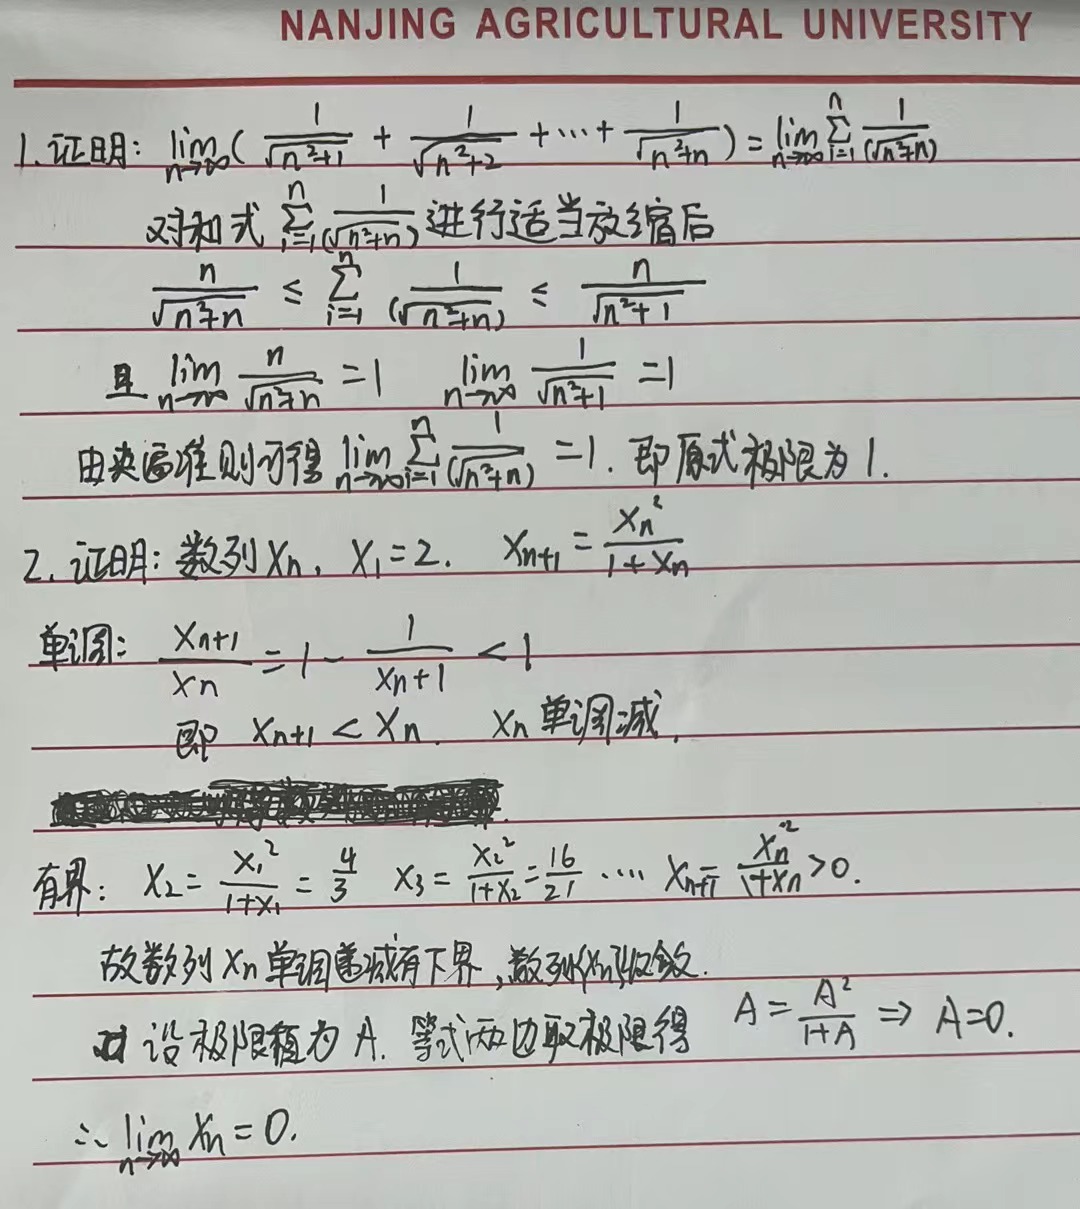 NANJING AGRICULTURAL UNIVERSITY
1. 证明: lim n→∞ ( 1/√(n²+1) + 1/√(n²+2) + ··· + 1/√(n²+n) ) = lim n→∞ Σ i=1 n 1/(√n²+n)
对和式 Σ i=1 n 1/(√n²+n) 进行适当放缩后
n/√(n²+n) ≤ Σ i=1 n 1/(√n²+n) ≤ n/√(n²+1)
且 lim n→∞ n/√(n²+n) = 1 lim n→∞ 1/√(n²+1) = 1
由夹逼准则可得 lim n→∞ Σ i=1 n 1/(√n²+n) = 1. 即原式极限为1.
2. 证明: 数列 Xn, X₁=2. Xn+1 = Xn²/(1+Xn)
单调: Xn+1/Xn = 1 - 1/(Xn+1) < 1
即 Xn+1 < Xn. Xn 单调减.
有界: X₂ = X₁²/(1+X₁) = 4/3 X₃ = X₂²/(1+X₂) = 16/21 ···· Xn+1 = Xn²/(1+Xn) > 0.
故数列 Xn 单调递减有下界, 数列{Xn}收敛.
设极限值为 A. 等式两边取极限得 A = A²/(1+A) ⇒ A=0.
∴ lim n→∞ Xn = 0.